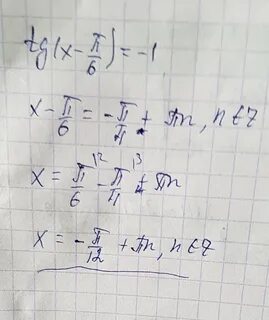 tg(x - π/6) = -1
x - π/6 = -π/4 + πn, n ∈ z
x = π/6 - π/4 + πn
x = -π/12 + πn, n ∈ z